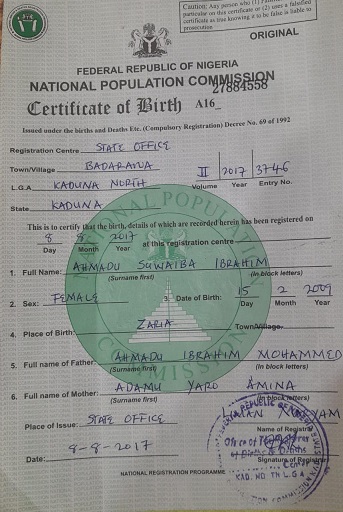 Caution: Any person who (1)
particular on this certificate or (2) uses a falsified
certificate as true knowing it to be false is liable to
prosecution
ORIGINAL
FEDERAL REPUBLIC OF NIGERIA
NATIONAL POPULATION COMMISSION
27884558
Certificate of Birth A16_
Issued under the births and Deaths Etc. (Compulsory Registration) Decree No. 69 of 1992
Registration Centre STATE OFFICE
Town/Village BADARAWA II 2017 3746
Volume Year Entry No.
L.G.A KADUNA NORTH
State KADUNA
This is to certify that the birth, details of which are recorded herein has been registered on
8 8 2017 at this registration centre
Day Month Year
1. Full Name: AHMADU SUWAIBA IBRAHIM
(Surname first) (In block letters)
2. Sex: FEMALE 3. Date of Birth: 15 2 2009
Day Month Year
4. Place of Birth: ZARIA Town/Village
5. Full name of Father: AHMADU IBRAHIM MOHAMMED
(Surname first) (In block letters)
6. Full name of Mother: ADAMU YARO AMINA
(Surname first) (In block letters)
Place of Issue: STATE OFFICE
Name of Registrar
Date: 8-8-2017
Signature of Registrar
KAD. ND TH L.G.A
NATIONAL REGISTRATION PROGRAMME
NATIONAL POPULATION COMMISSION